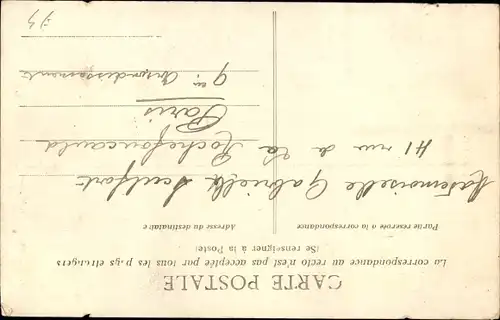 CARTE POSTALE
La correspondance au recto n'est pas acceptée par tous les pays étrangers
(Se renseigner à la Poste)
Partie réservée à la correspondance
Adresse du destinataire
Mademoiselle Gabrielle
41 rue de La
Rochefoucauld
Paris
9 arrondissement